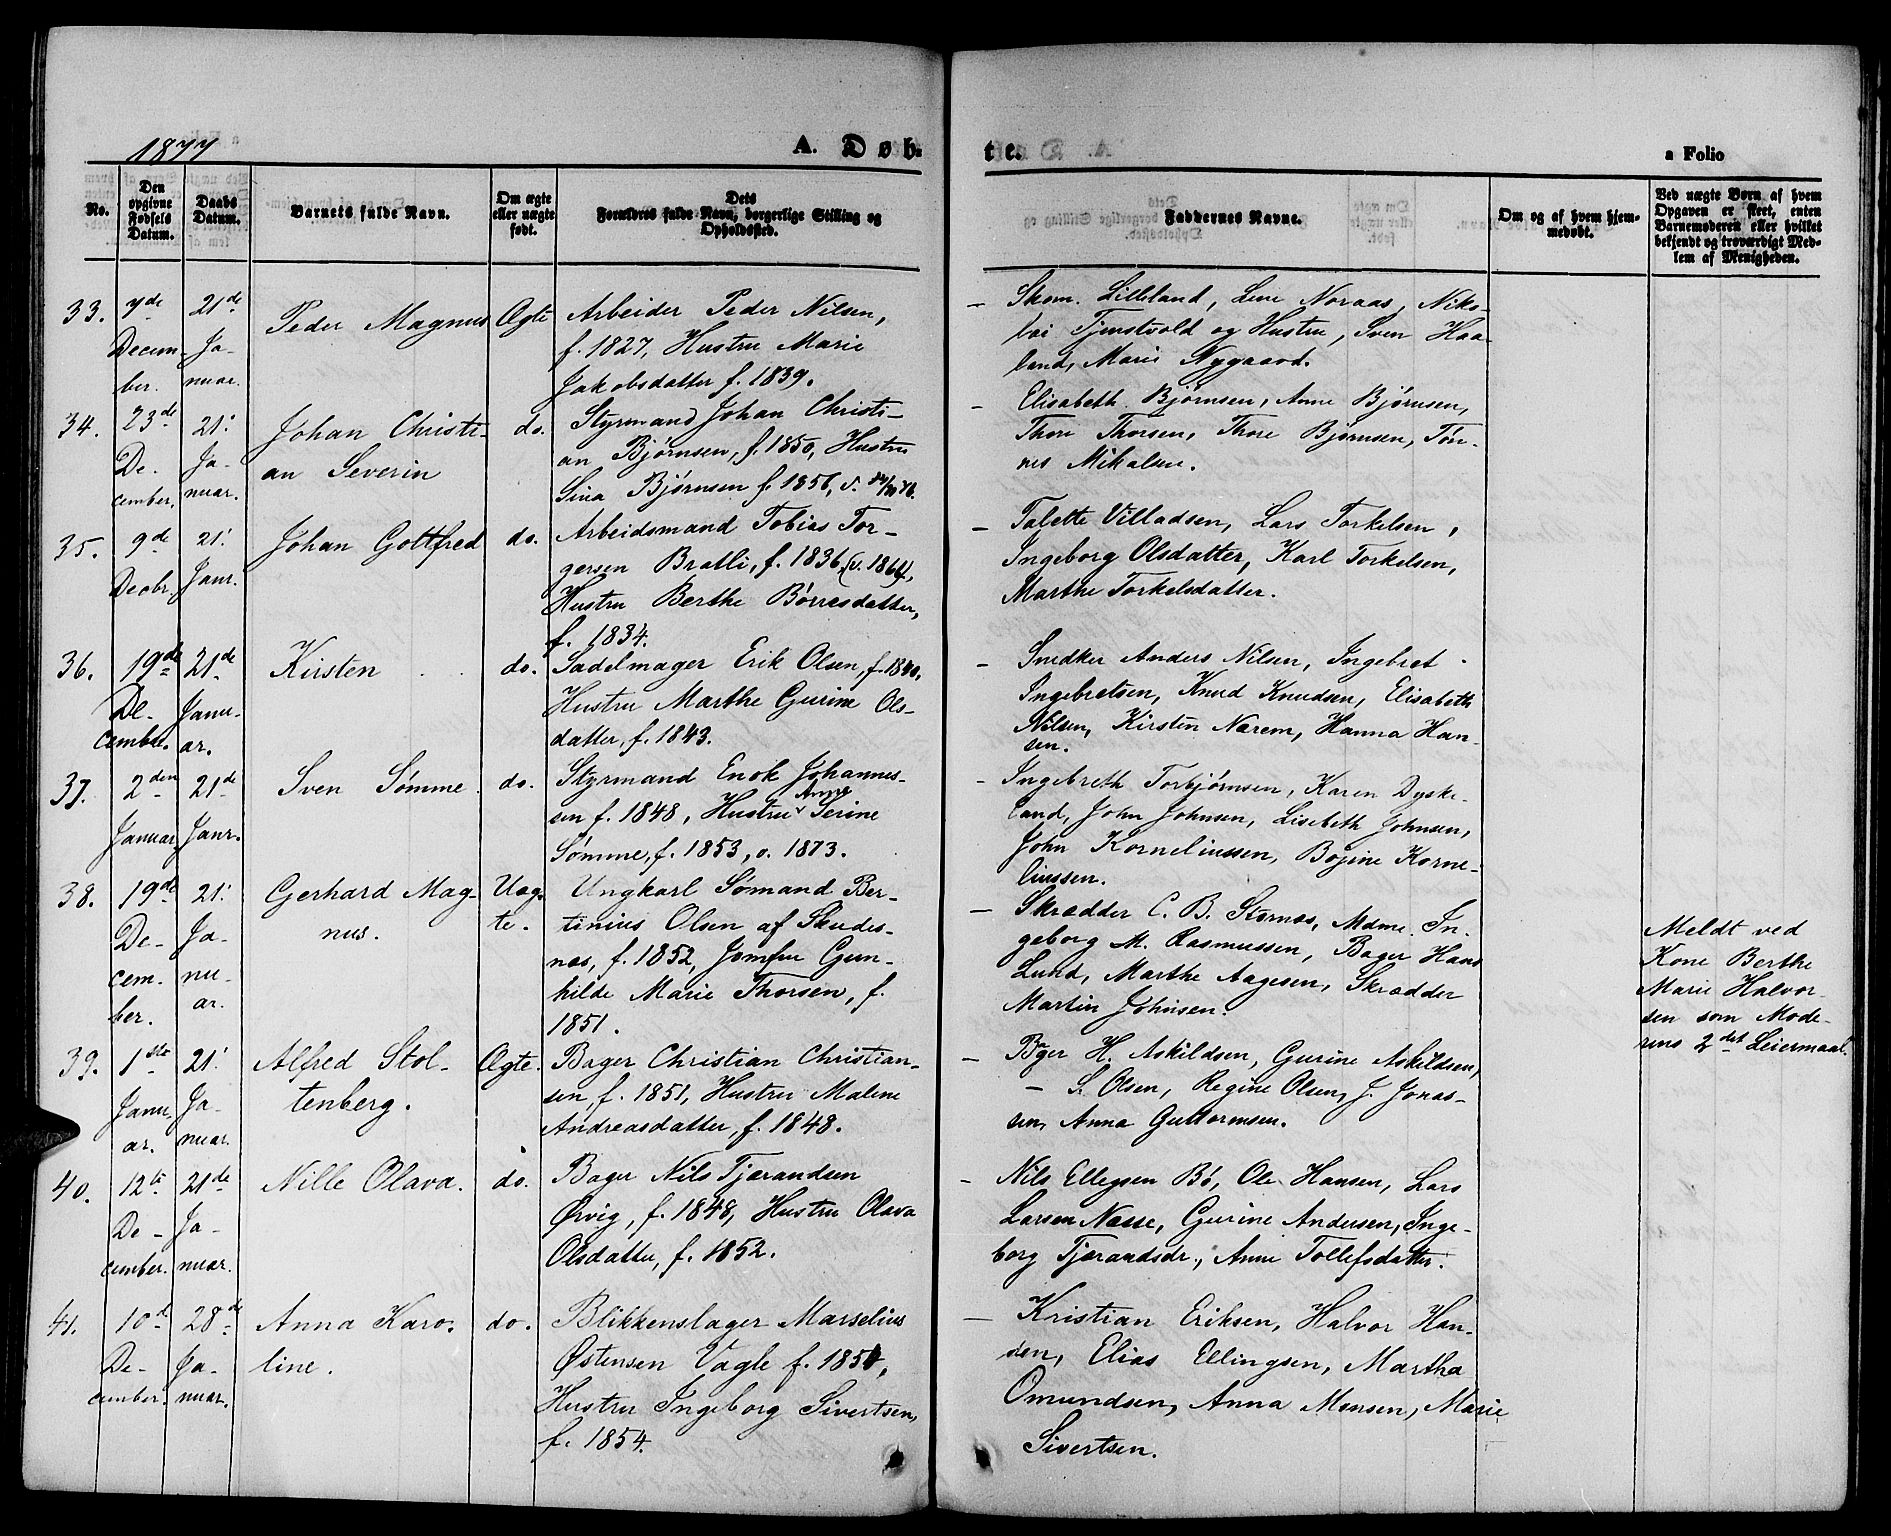 1877
A. Døb-
te.
a Folio
No.
Den opgivne Fødsels Datum.
Daabs Datum.
Barnets fulde Navn.
Om ægte eller uægte født.
Dets
Forældres fulde Navn, borgerlige Stilling og
Opholdssted.
Faddernes Navne.
Om og af hvem hjem-
medøbt.
Ved uægte Børn af hvem
Opgaven er skeet, enten
Barnemoderen eller hvilket
bekjendt og troværdigt Med-
lem af Menigheden.
33. 7de Decem-ber. 21de Ja-nuar. Peder Magnus Ægte
Arbeider Peder Nilsen,
f. 1827, Hustru Marie
Jakobsdatter f. 1839.
– Skom. Lilleland, Lene Noraas, Niko-
lai Tjenstvold og Hustru, Sven Haa-
land, Marie Nygaard.
34. 23de De-cember. 21. Ja-nuar. Johan Christi-
an Severin do.
Styrmand Johan Christi-
an Bjørnsen, f. 1850, Hustru
Sina Bjørnsen f. 1856, v.
– Elisabeth Bjørnsen, Anne Bjørnsen,
Thore Thorsen, Thore Bjørnsen, Tøn-
nes Mikalsen.
35. 9de Decbr. 21. Janr. Johan Gottfred do.
Arbeidsmand Tobias Tor-
gersen Bratli, f. 1836, (v. 1864),
Hustru Berthe Børresdatter,
f. 1834.
– Talette Villadsen, Lars Torkelsen,
Ingeborg Olsdatter, Karl Torkelsen,
Marthe Torkelsdatter.
36. 19de De-cember. 21de Janu-ar. Kirsten do.
Sadelmager Erik Olsen, f. 1840,
Hustru Marthe Gurine Ols-
datter, f. 1843.
– Snedker Anders Nilsen, Ingebret
Ingebretsen, Knud Knudsen, Elisabeth
Nilsen, Kirsten Nærem, Hanna Han-
sen.
37. 2den Januar 21de Janr. Sven Sømme do.
Styrmand Enok Johannes-
sen f. 1848, Hustru Anne Serine
Sømme, f. 1853, v. 1873.
– Ingebreth Torbjørnsen, Karen Dyske-
land, John Johnsen, Lisebeth Johnsen,
John Korneliussen, Bojine Korne-
liussen.
38. 19de De-cem-ber. 21. Ja-nu-ar. Gerhard Mag-
nus. Uæg-
te.
Ungkarl Sømand Ber-
tinius Olsen af Skudes-
nes, f. 1852, Jomfru Gun-
hilde Marie Thorsen, f.
1851.
– Skrædder C. B. Stornæs, Mdme. In-
geborg M. Rasmussen, Bager Hans
Lund, Marthe Aagesen, Skrædder
Martin Johnsen.
Meldt ved
Kone Berthe
Marie Halvor-
sen som Mode-
rens 2det Leiermaal.
39. 1ste Janu-ar. 21. Ja-nuar. Alfred Stol-
tenberg. Ægte.
Bager Christian Christian-
sen, f. 1851, Hustru Malene
Andreasdatter, f. 1848.
– Bger H. Askildsen, Gurine Askildsen,
– S. Olsen, Regine Olsen, J. Jonas-
sen, Anna Guttormsen.
40. 12te De-cember. 21de Ja-nuar. Nille Olava. do.
Bager Nils Tjerandsen
Ørvig, f. 1848, Hustru Olava
Olsdatter, f. 1852.
– Nils Ellegsen Bø, Ole Hansen, Lars
Larsen Næsse, Gurine Andersen, Inge-
borg Tjerandsdr., Anne Tollefsdatter.
41. 10d De-cember. 28de Ja-nuar. Anna Karo-
line. do.
Blikkenslager Marselius
Østensen Vagle f. 1850,
Hustru Ingeborg Sivertsen,
f. 1854.
– Kristian Eriksen, Halvor Han-
sen, Elias Ellingsen, Martha
Omundsen, Anna Monsen, Marie
Sivertsen.